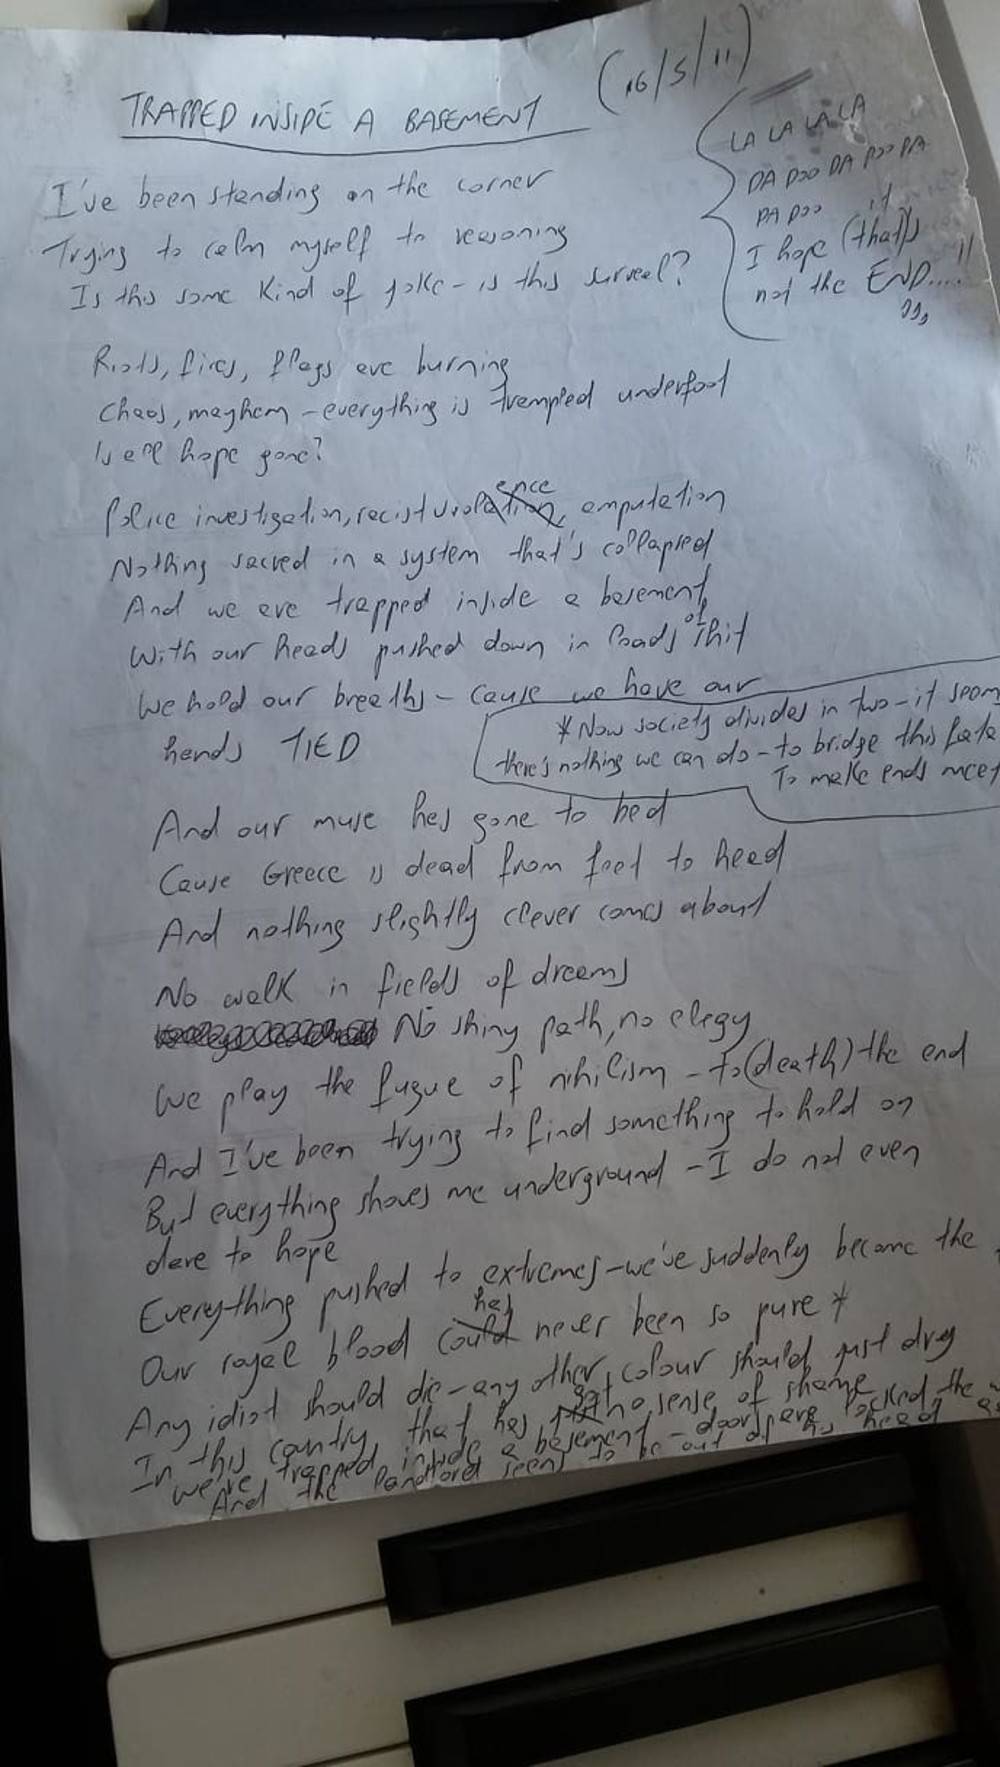 TRAPPED INSIDE A BASEMENT (16/5/11)
LA LA LA LA
DA DOO DA DOO DA
DA DOO
I hope (that)'s it
not the END....!!
I've been standing on the corner
Trying to calm myself to reasoning
Is this some kind of joke - is this surreal?
Riots, fires, flags are burning
Chaos, mayhem - everything is trampled underfoot
Is all hope gone?
Police investigation, racist violence, amputation
Nothing sacred in a system that's collapsed
And we are trapped inside a basement
With our heads pushed down in loads of shit
We hold our breaths - cause we have our
hands TIED
* Now society divides in two - it seems
there's nothing we can do - to bridge this fate
To make ends meet
And our muse has gone to bed
Cause Greece is dead from feet to head
And nothing slightly clever comes about
No walk in fields of dreams
No shiny path, no elegy
We play the fugue of nihilism - to (death) the end
And I've been trying to find something to hold on
But everything shoves me underground - I do not even
dare to hope
Everything pushed to extremes - we've suddenly become the
Our royal blood has never been so pure *
Any idiot should die - any other colour should just dry
In this country that has got no sense of shame
We're trapped inside a basement - doors are locked the
And the landlord seems to be out of his head